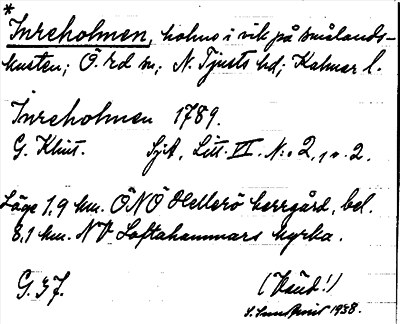 *
Inreholmen, holme i vik på smålands-
kusten; Ö. rd m; N. Tjusts hd; Kalmar l.
Inreholmen 1789.
G. Klint. Sjå, Litt. VI. N:o 2, 1 v. 2.
Läge 1,9 km. ÖNÖ Hellerö herrgård, bel.
8,1 km. NV Loftahammars kyrka.
G. 37. (Vänd!)
1938.